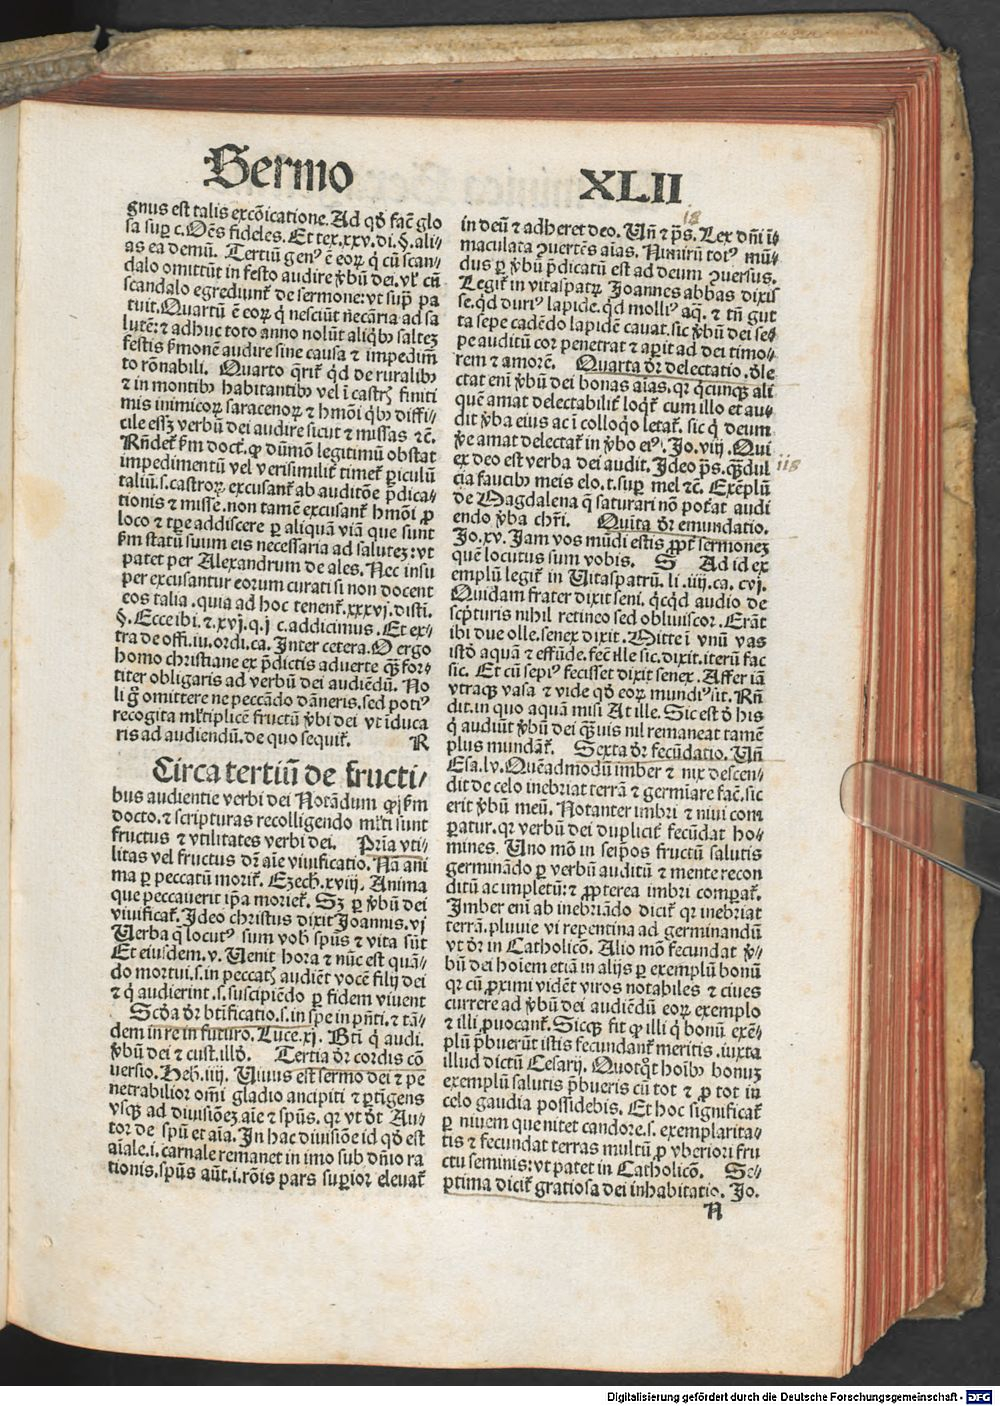 Sermo XLII
gnus est talis excōicatione. Ad qđ fac̄ glo
sa suꝑ c. Oēs fideles. Et tex. xxv. di. §. ali-
as ea demū. Tertiū genꝰ ē eoꝝ q̇ cū scan-
dalo omittūt in festo audire ꝟbū dei. vl' cū
scandalo egrediunt̄ de sermone: vt supᷓ pa
tuit. Quartū ē eoꝝ q̇ nesciūt nēcāria ad sa
lutē: ⁊ adhuc toto anno nolūt aliqbꝰ saltez
festis ẜmonē audire sine causa ⁊ impedim̄
to rōnabili. Quarto q̄rit̄ qd de ruralibꝰ
⁊ in montibꝰ habitantibꝰ vel ī castrꝭ finiti
mis inimicoꝝ saracenoꝝ ⁊ hmōi qbꝰ diffi-
cile essꝫ verbū dei audire sicut ⁊ missas ⁊c̄.
Rn̄det̄ ẜm doct. ꝙ dūmō legitimū obstat
impedimentū vel verisimilit̄ timet̄ ꝑiculū
taliū. s. castroꝝ. excusant̄ ab auditōe p̄dica-
tionis ⁊ misse. non tamē excusant̄ hmōi ꝓ
loco ⁊ tꝑe addiscere ꝑ aliquā viā que sunt
ẜm statū suum eis necessaria ad salutez: vt
patet per Alexandrum de ales. Nec insu
per excusantur eorum curati si non docent
eos talia. quia ad hoc tenent̄. xxxvj. disti.
§. Ecce ibi. ⁊. xvj. q. j c. addicimus. Et ex-
tra de offi. iu. ordi. ca. Inter cetera. O ergo
homo christiane ex p̄dictis aduerte qᷓꝫ for-
titer obligaris ad verbū dei audiēdū. No
li g̊ omittere ne peccādo dāneris. sed potiꝰ
recogita ml'tiplicē fructū ꝟbi dei vt īduca
ris ad audiendū. de quo sequit̄. R
Circa tertiū de fructi-
bus audientie verbi dei Notādum ꝙ ẜm
docto. ⁊ scripturas recolligendo ml'ti sunt
fructus ⁊ vtilitates verbi dei. Pria vti-
litas vel fructus dr̄ aīe viuificatio. Nā ani
ma ꝑ peccatū morit̄. Ezech. xviij. Anima
que peccauerit ip̄a moriet̄. Sꝫ ꝑ ꝟbū dei
viuificat̄. Ideo christus dixit Joannis. vj
Verba q̄ locutꝰ sum vob' spūs ⁊ vita sūt
Et eiusdem. v. Uenit hora ⁊ nūc est quā-
do mortui. s. in peccatꝭ audiēt vocē filij dei
⁊ q̇ audierint. s. suscipiēdo ꝑ fidem viuent
Scd̄a dr̄ btīficatio. s. in spe in pn̄ti. ⁊ tā-
dem in re in futuro. Luce. xj. Bti q̇ audi.
ꝟbū dei ⁊ cust. illd̄. Tertia dr̄ cordis cō
uersio. Heb. iiij. Uiuus est sermo dei ⁊ pe
netrabilior omī gladio ancipiti ⁊ ꝑtīgens
vsqꝫ ad diuisiōez aīe ⁊ spūs. qꝛ vt dt̄ Au-
tor de spū et aīa. In hac diuisiōe id qđ est
aīale. i. carnale remanet in imo sub dn̄io ra
tionis. spūs aūt. i. rōis pars suꝑior eleuat̄
in deū ⁊ adheret deo. Un̄ ⁊ ps̄. Lex dn̄i ī- 18
maculata ꝯuertēs aīas. Nimirū totꝰ mū-
dus ꝑ ꝟbū p̄dicatū est ad deum ꝯuersus.
Legit̄ in vitaspatꝝ Joannes abbas dixis
se. qd duriꝰ lapide. qd molliꝰ aq̄. ⁊ tn̄ gut
ta sepe cadēdo lapidē cauat. sic ꝟbū dei se-
pe auditū cor penetrat ⁊ aꝑit ad dei timo-
rem ⁊ amorē. Quarta dr̄ delectatio. dele
ctat enī ꝟbū dei bonas aīas. qꝛ qcunqꝫ ali
quē amat delectabilit̄ loqt̄ cum illo et au-
dit ꝟba eius ac ī colloqo letat̄. sic q̇ deum
ꝟe amat delectat̄ in ꝟbo eiꝰ. Jo. viij. Qui
ex deo est verba dei audit. Ideo ps̄. qᷓꝫ dul 118
cia faucibꝰ meis elo. t. suꝑ mel ⁊c̄. Exēplū
de Magdalena q̄ saturari nō potat̄ audi
endo ꝟba chr̄i. Quīta dr̄ emundatio.
Jo. xv. Jam vos mūdi estis ꝓpt̄ sermonez
quē locutus sum vobis. S Ad id ex
emplū legit̄ in Uitaspatrū. li. iiij. ca. cvj.
Quidam frater dixit seni. qcqd audio de
scp̄turis nihil retineo sed obliuiscor. Erāt
ibi due olle. senex dixit. Mitte ī vnū vas
istoꝝ aquā ⁊ effūde. fec̄ ille sic. dixit. iterū fac
sic. Et cū sepiꝰ fecisset dixit senex. Affer iā
vtraqꝫ vasa ⁊ vide qđ eoꝝ mundiꝰ sit. Rn̄
dit. in quo aquā misi At ille. Sic est d̄ his
q̇ audiūt ꝟbū dei qᷓꝫuis nil remaneat tamē
plus mundāt̄. Sexta dr̄ fecūdatio. Un̄
Esa. lv. Quēadmodū imber ⁊ nix descen-
dit de celo inebriat terrā ⁊ germīare fac̄. sic
erit ꝟbū meū. Notanter imbri ⁊ niui com
ꝑatur. qꝛ verbū dei duplicit̄ fecūdat ho-
mines. Uno mō in seip̄os fructū salutis
germinādo ꝑ verbū auditū ⁊ mente recon
ditū ac impletū: ⁊ ꝓpterea imbri compat̄.
Imber enī ab inebriādo dicit̄ qꝛ inebriat
terrā. pluuie vi repentina ad germinandū
vt dr̄ in Catholicō. Alio mō fecundat ꝟ-
bū dei hoīem etiā in alijs ꝑ exemplū bonū
qꝛ cū ꝓximi vidēt viros notabiles ⁊ ciues
currere ad ꝟbū dei audiēdū eoꝝ exemplo
⁊ illi ꝓuocant̄. Sicqꝫ fit ꝙ illi q̇ bonū exē-
plū p̄buerūt istis fecundant̄ meritis. iuxta
illud dictū Cesarij. Quotqt hoībꝰ bonuz
exemplū salutis p̄bueris cū tot ⁊ ꝓ tot in
celo gaudia possidebis. Et hoc significat̄
ꝑ niuem que nitet candore. s. exemplarita-
tis ⁊ fecundat terras multū ꝓ vberiori fru
ctu seminis: vt patet in Catholicō. Se-
ptima dicit̄ gratiosa dei inhabitatio. Jo.
N
Digitalisierung gefördert durch die Deutsche Forschungsgemeinschaft - DFG